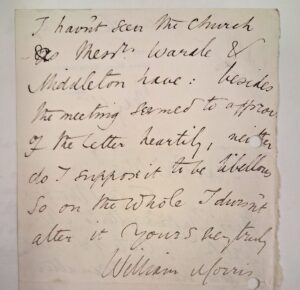 I havn't seen the Church
as Messrs. Wardle &
Middleton have: besides
the meeting seemed to approve
of the letter heartily, neither
do I suppose it to be libellous
So on the whole I doesn't
alter it Yours very truly
William Morris